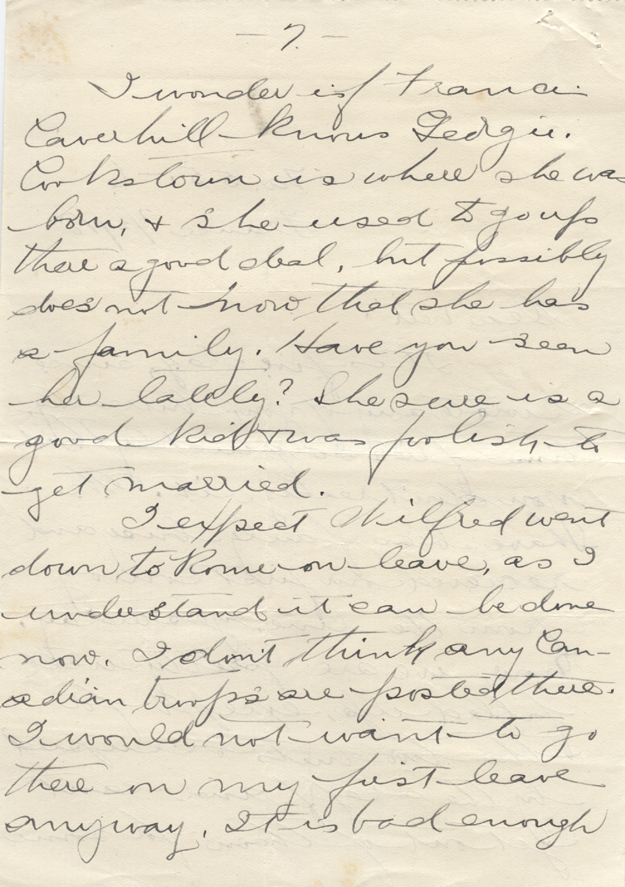 - 7. -
I wonder if Francis
Caverhill knows Georgie.
Cookstown is where she was
born, & she used to go up
there a good deal, but possibly
does not know that she has
a family. Have you seen
her lately? She sure is a
good kid & was foolish to
get married.
I expect Wilfred went
down to Rome on leave, as I
understand it can be done
now. I don't think any Can-
adian troops are posted there.
I would not want to go
there on my first leave
anyway. It is bad enough